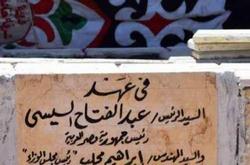 في عهد
السيد الرئيس/ عبد الفتاح السيسي
رئيس جمهورية مصر العربية
والسيد المهندس/ إبراهيم محلب رئيس مجلس الوزراء